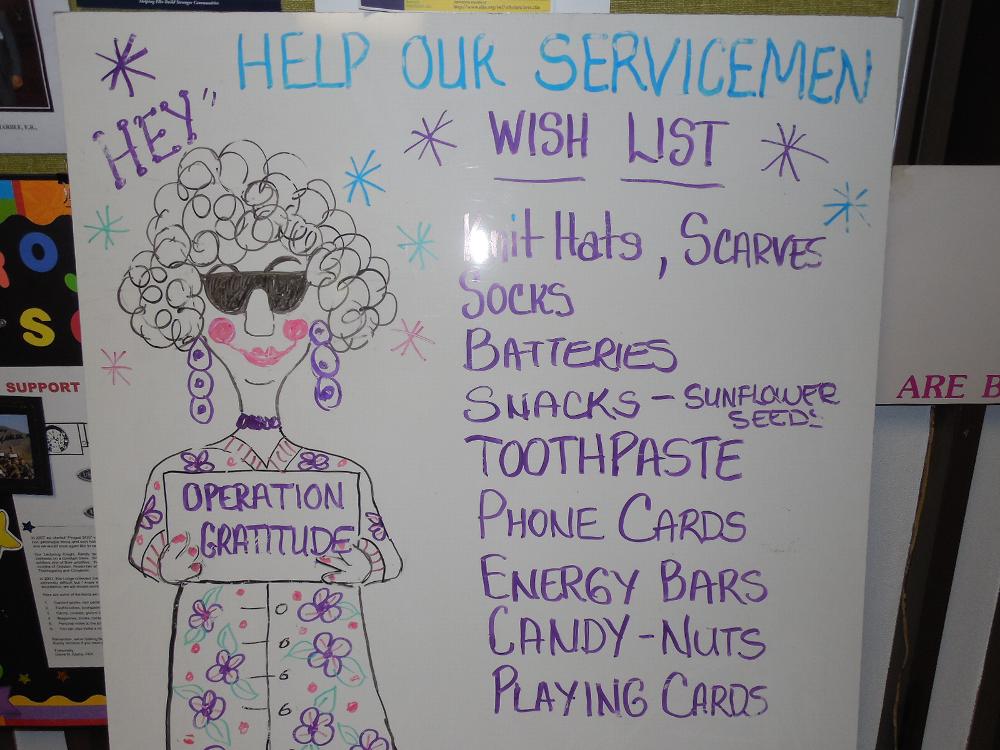 Helping Elks Build Stronger Communities
HELP OUR SERVICEMEN
HEY"
WISH LIST
Knit Hats, SCARVES
SOCKS
BATTERIES
SNACKS - SUNFLOWER
SEEDS
TOOTHPASTE
PHONE CARDS
ENERGY BARS
CANDY - NUTS
PLAYING CARDS
OPERATION
GRATITUDE
SUPPORT
ARE B